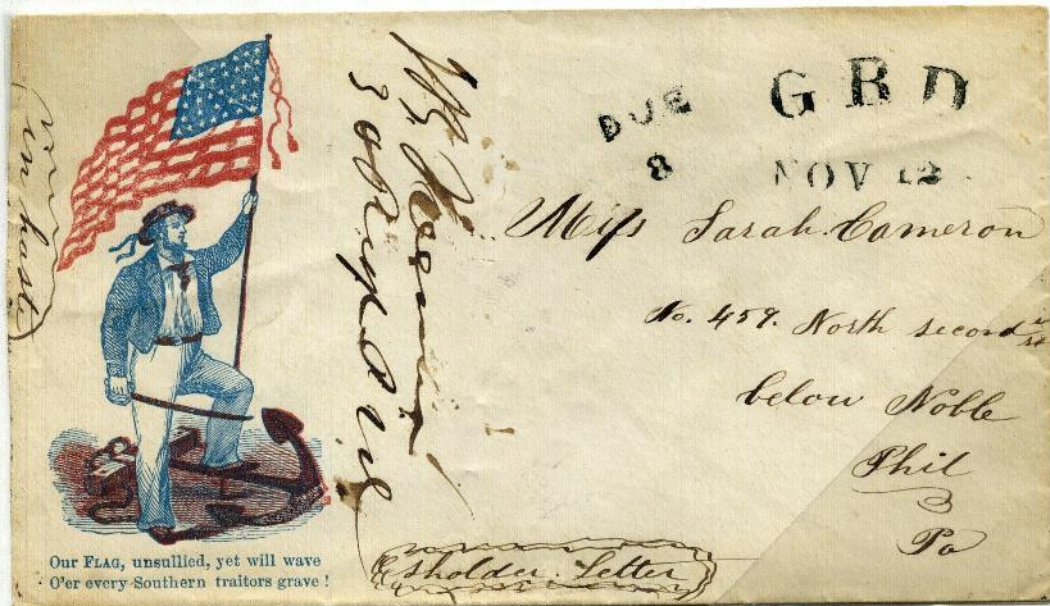 DUE
8
GBD
NOV 12
Miss Sarah Cameron
No. 459. North second st
below Noble
Phil
Pa
in haste
Letter
Our FLAG, unsullied, yet will wave
O'er every Southern traitors grave!